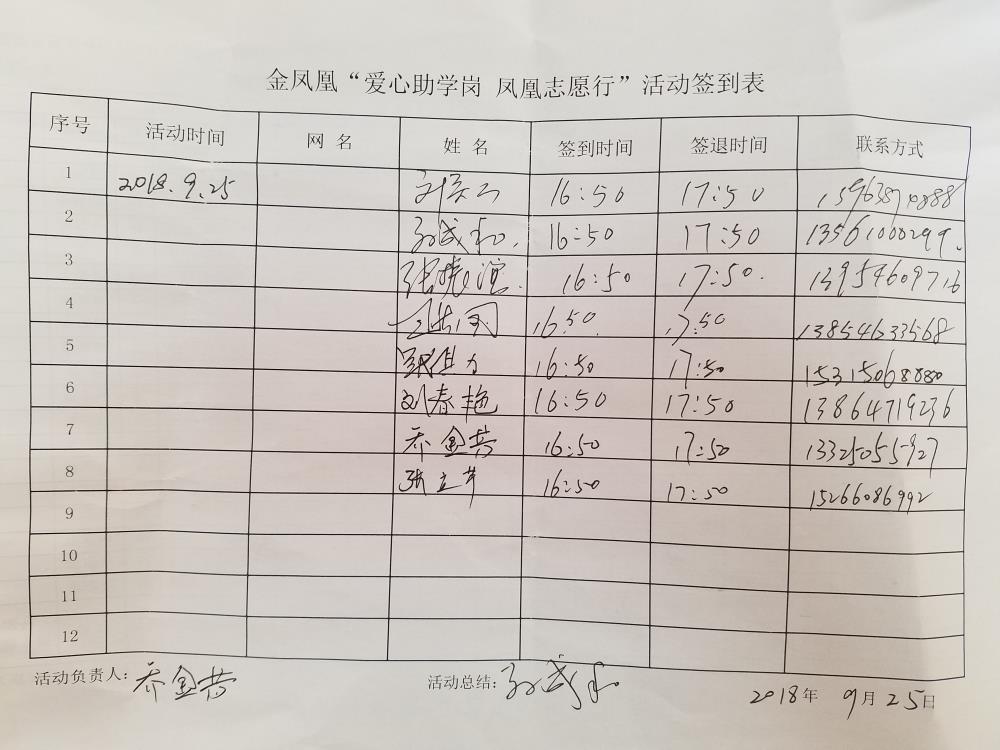 金凤凰“爱心助学岗 凤凰志愿行”活动签到表
序号 活动时间 网名 姓名 签到时间 签退时间 联系方式
1 2018.9.25 16:50 17:50
2 孙成和. 16:50 17:50 13561000299.
3 16:50 17:50. 13954609716
4 16:50 17:50 13854633568
5 16:50 17:50 15315068880
6 刘春艳 16:50 17:50 13864719236
7 乔金芬 16:50 17:50 13325055927
8 张立芹 16:50 17:50 15266086992
9
10
11
12
活动负责人: 乔金芬 活动总结: 孙成和 2018年 9月25日